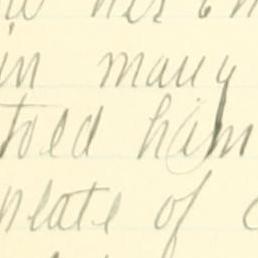 her
in many
told him
plate of